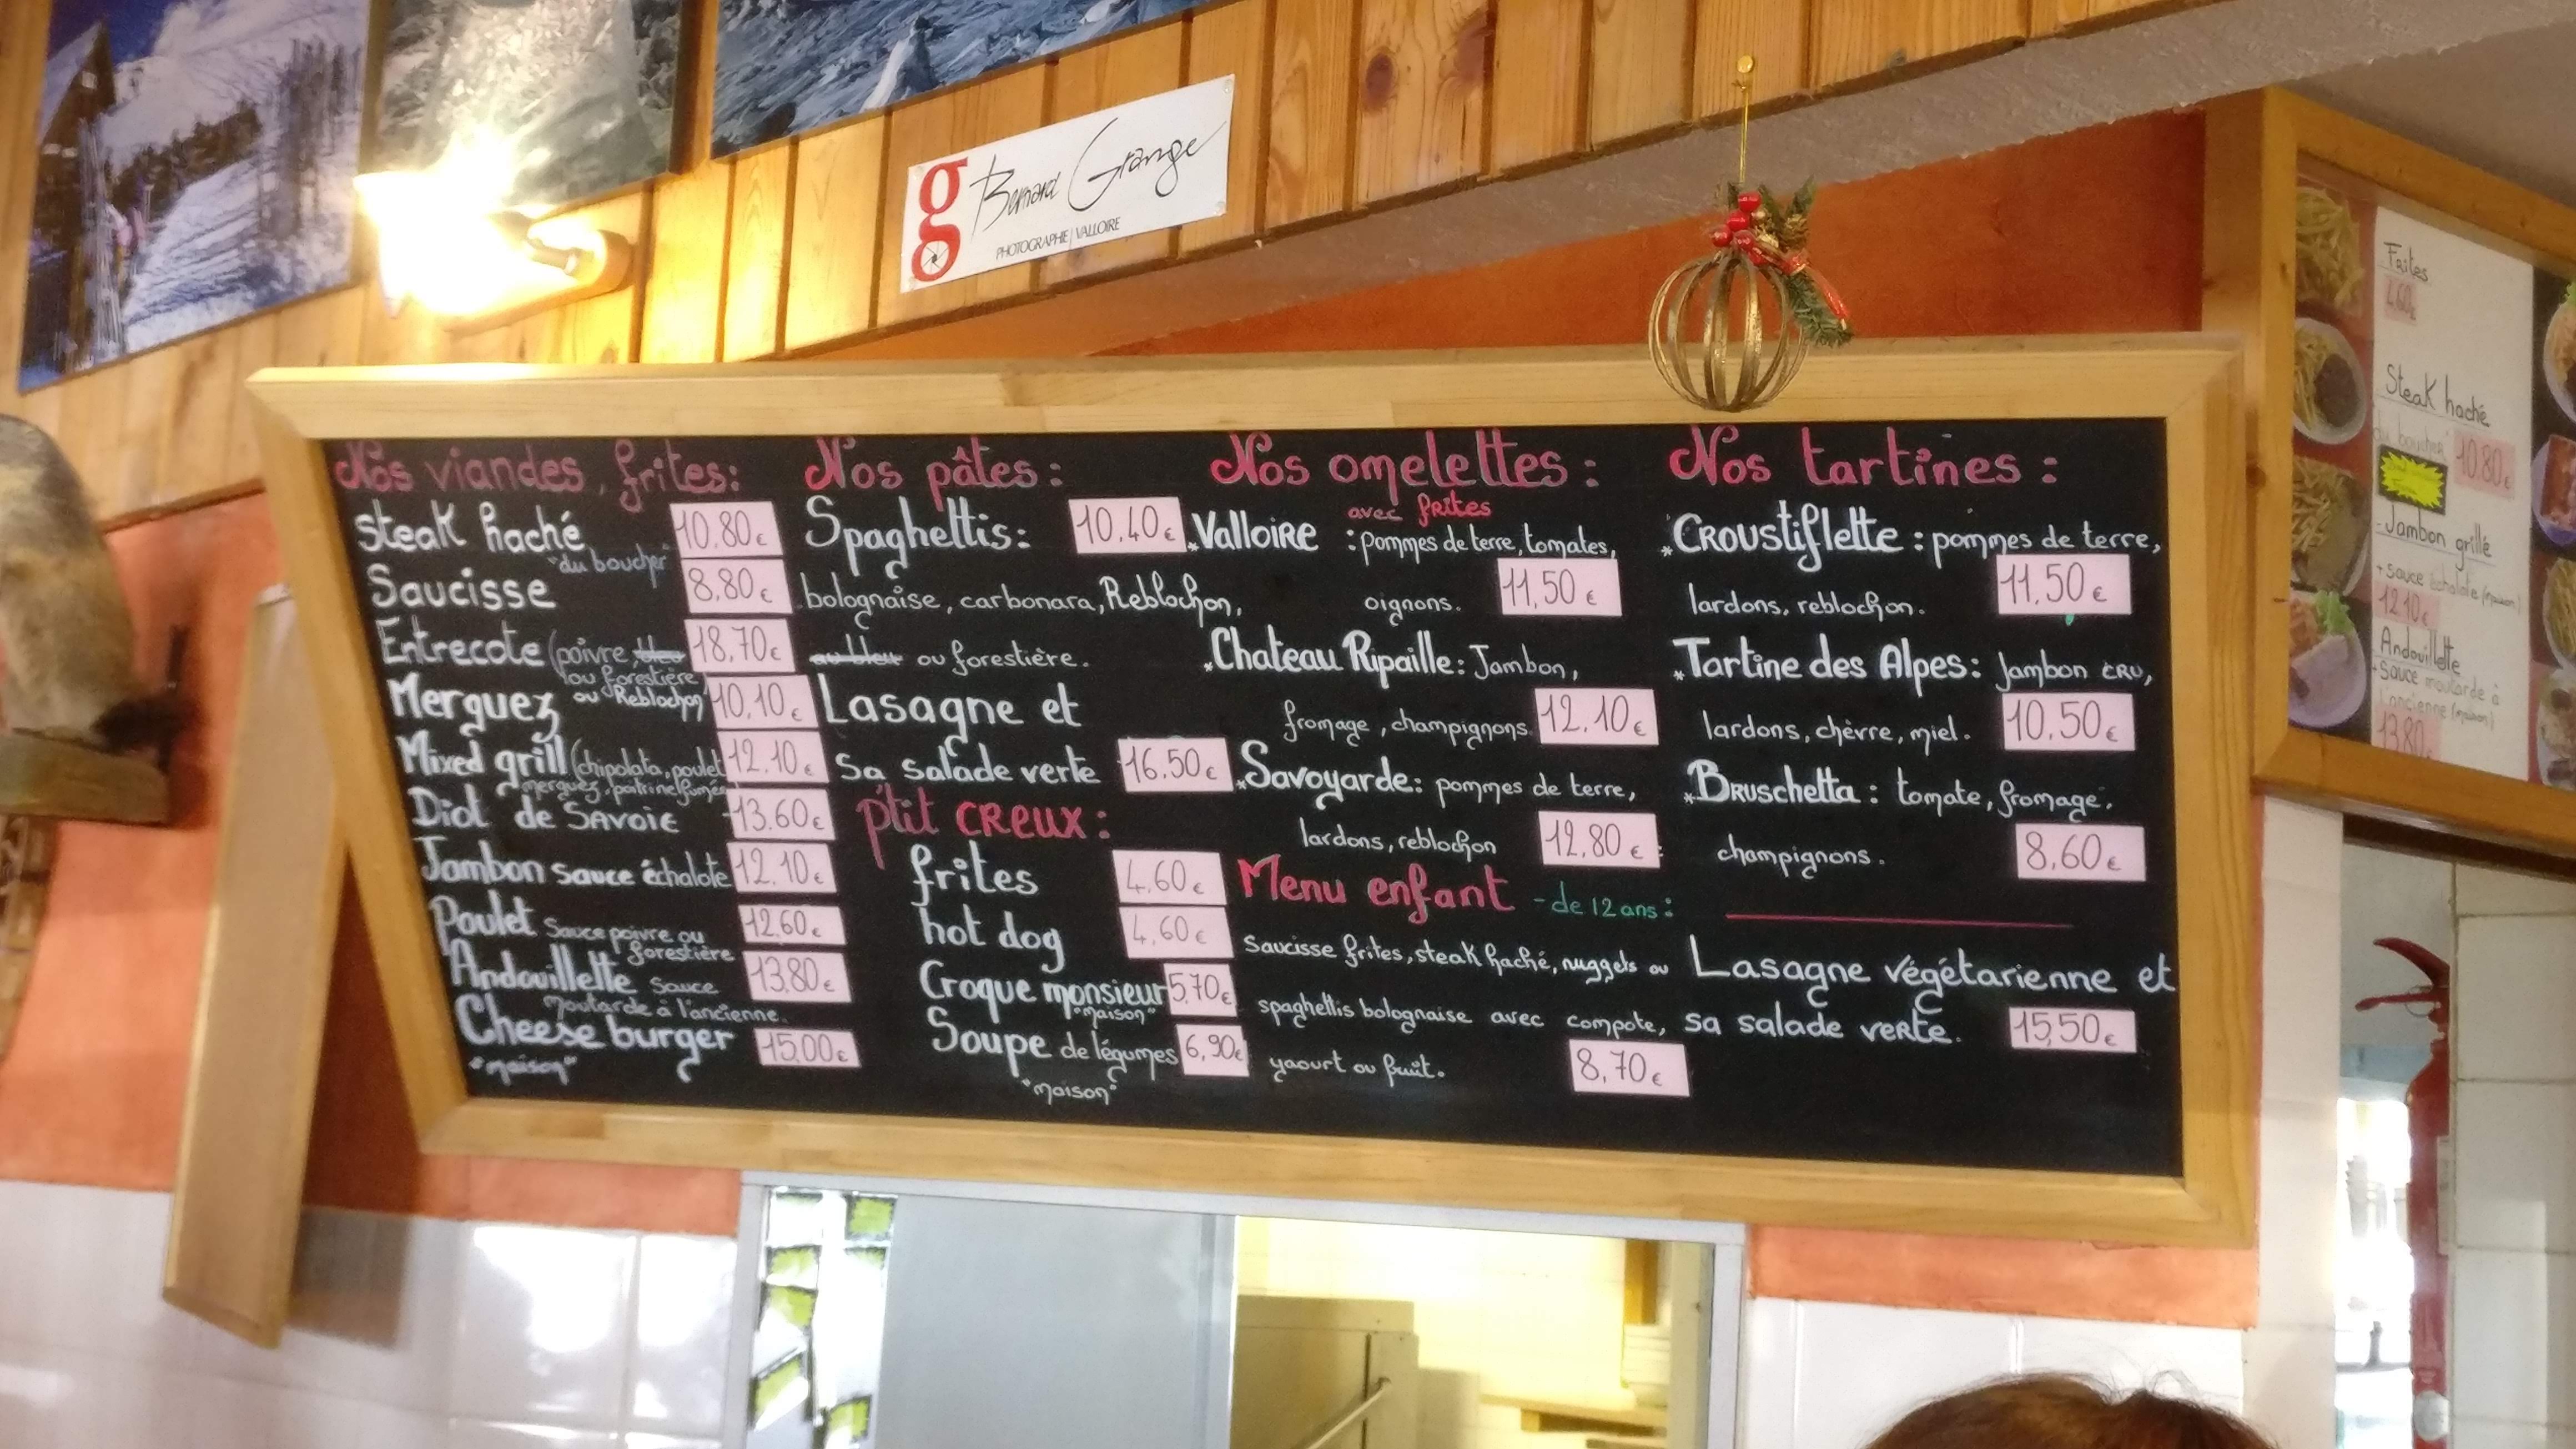 g Bernard Grange
PHOTOGRAPHIE | VALLOIRE
Nos viandes, frites:
Steak haché 10.80€
"du boucher"
Saucisse 8.80€
Entrecote (poivre, bleu 18,70€
ou forestière
ou Reblochon)
Merguez 10,10€
Mixed grill (chipolata, poulet 12.10€
merguez, poitrine fumée
Diot de SAVOIE 13.60€
Jambon sauce échalote 12.10€
Poulet Sauce poivre ou 12.60€
forestière
Andouillette Sauce 13,80€
Moutarde à l'ancienne.
Cheese burger 15,00€
"maison"
Nos pâtes:
Spaghettis: 10.40€
bolognaise, carbonara, Reblochon,
au bleu ou forestière.
Lasagne et
Sa salade verte 16.50€
p'tit CREUX:
frites 4.60€
hot dog 4,60€
Croque monsieur 5,70€
"maison"
Soupe de légumes 6,90€
"maison"
Nos omelettes:
avec frites
*Valloire : pommes de terre, tomates,
oignons. 11,50€
*Chateau Ripaille: Jambon,
fromage, champignons. 12,10€
*Savoyarde: pommes de terre,
lardons, reblochon 12,80€
Menu enfant - de 12 ans:
Saucisse frites, steak haché, nuggets ou
spaghettis bolognaise avec compote,
yaourt ou fruit.
8,70€
Nos tartines:
*CROUSTIFLETTE : pommes de terre,
lardons, reblochon. 11,50€
*Tartine des Alpes: Jambon CRU,
lardons, chèvre, miel. 10,50€
*BRUSCHETTA : tomate, fromage,
champignons. 8,60€
Lasagne végétarienne et
sa salade verte. 15,50€
- Frites
4,60€
Steak haché
du boucher 10.80€
- Jambon grillé
+ sauce échalote (maison)
12.10€
Andouillette
+ Sauce moutarde à
l'ancienne (maison)
13.80€